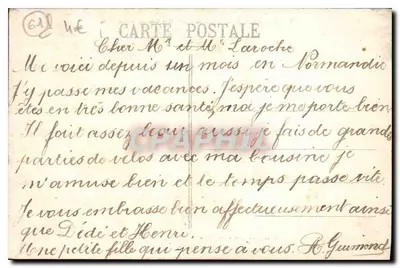 61 4€
CARTE POSTALE
Cher Mr et Me Laroche
Me voici depuis un mois en Normandie
J'y passe mes vacances. J'espère que vous
êtes en très bonne santée, moi je me porte bien
Il fait assez beau aussi je fais de grande
parties de vélos avec ma cousine je
m'amuse bien et le temps passe vite.
Je vous embrasse bien affectueusement ainsi
que Dédé et Henri.
Une petite fille qui pense à vous. A. Guimond